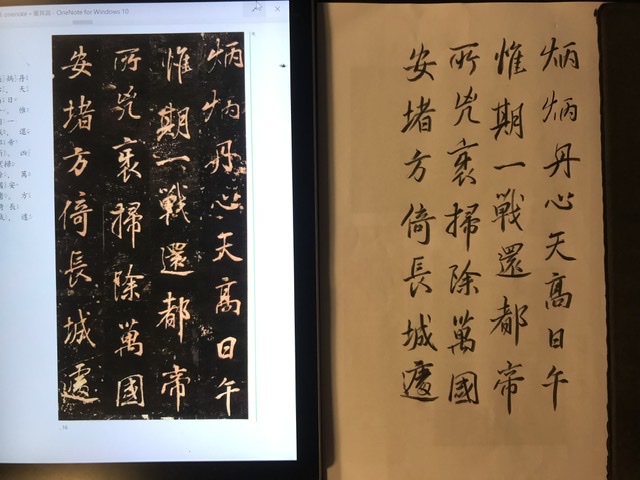 OneNote for Windows 10
炳炳丹心天高日午
惟期一戰還都帝
所兇掃除萬國
安堵方倚長城遽
16
炳炳丹心天高日午
惟期一戰還都帝
所兇掃除萬國
安堵方倚長城遽